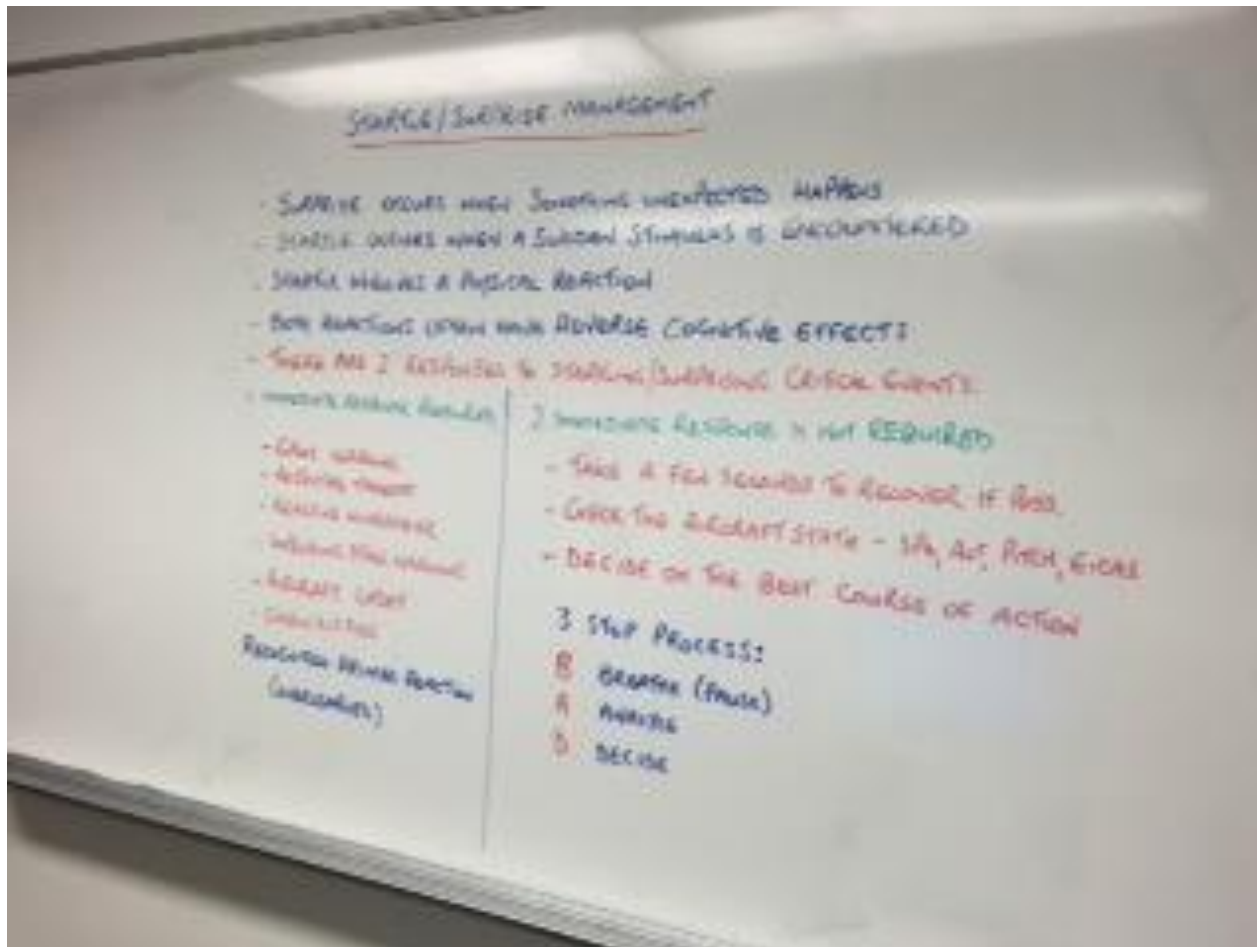 STARTLE/SURPRISE MANAGEMENT
- SURPRISE OCCURS WHEN SOMETHING UNEXPECTED HAPPENS
- STARTLE OCCURS WHEN A SUDDEN STIMULUS IS ENCOUNTERED
- STARTLE INVOLVES A PHYSICAL REACTION
- BOTH REACTIONS OFTEN HAVE ADVERSE COGNITIVE EFFECTS
- THERE ARE 2 RESPONSES TO STARTLING/SURPRISING CRITICAL EVENTS
IMMEDIATE RESPONSE REQUIRED
- GPWS WARNING
- REACTIVE WINDSHEAR
- AIRCRAFT UPSET
REACTION
2 IMMEDIATE RESPONSE IS NOT REQUIRED
- TAKE A FEW SECONDS TO RECOVER IF POSS
- CHECK THE AIRCRAFT STATE - SPD, ALT, PITCH, EICAS
- DECIDE ON THE BEST COURSE OF ACTION
3 STEP PROCESS:
B BREATHE (PAUSE)
A ANALYSE
D DECIDE